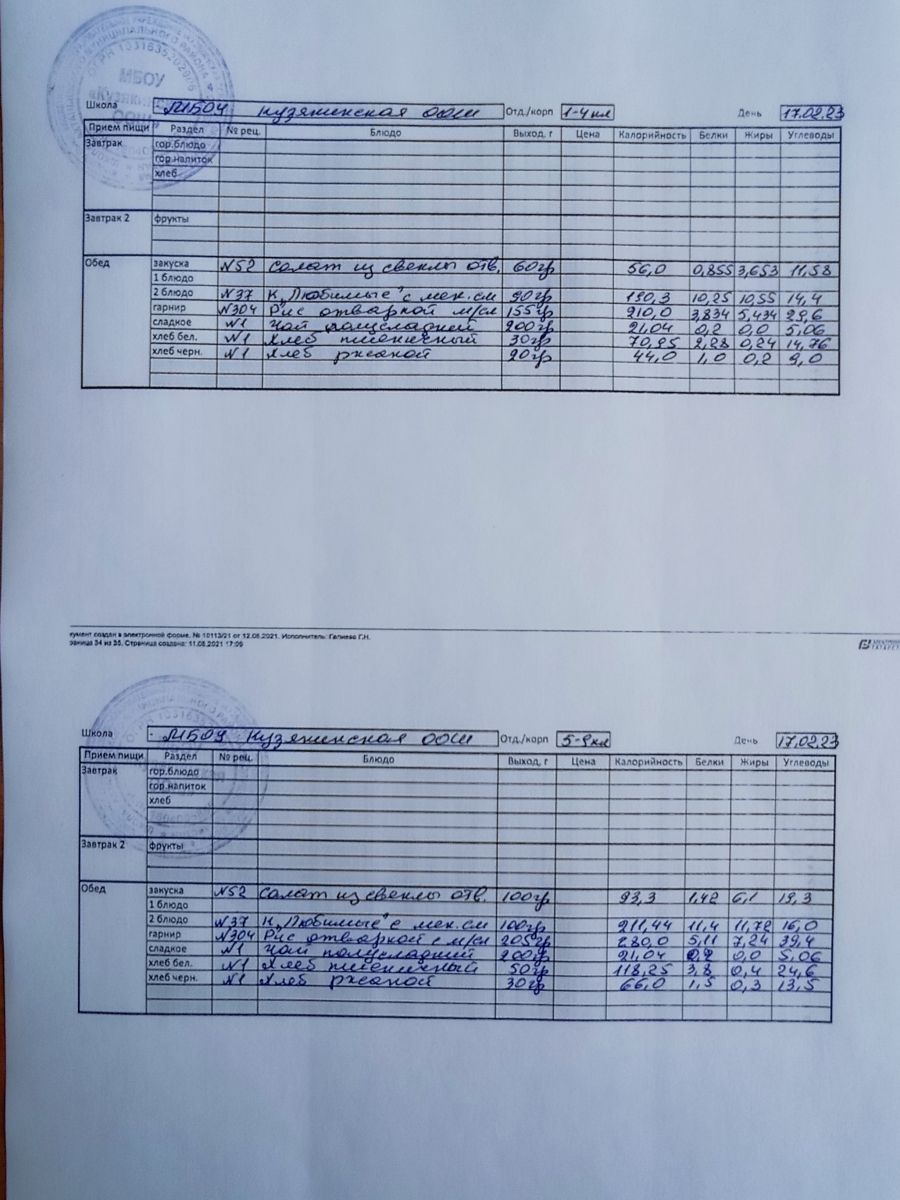 МБОУ
Школа МБОУ Кузякинская ООШ Отд./корп 1-4 кл День 17.02.23
Прием пищи Раздел № рец. Блюдо Выход, г Цена Калорийность Белки Жиры Углеводы
Завтрак гор.блюдо
гор.напиток
хлеб
Завтрак 2 фрукты
Обед закуска №52 Салат из свеклы отв. 60гр 56,0 0,855 3,653 11,58
1 блюдо
2 блюдо №37 К „Любимые" с мек.см 90гр 190,3 10,25 10,55 14,4
гарнир №304 Рис отварной м/сл 155гр 210,0 3,834 5,434 29,6
сладкое №1 Чай полусладкий 200гр 21,04 0,2 0,0 5,06
хлеб бел. №1 Хлеб пшеничный 30гр 70,95 2,28 0,24 14,76
хлеб черн. №1 Хлеб ржаной 20гр 44,0 1,0 0,2 9,0
кумент создан в электронной форме. № 10113/21 от 12.08.2021. Исполнитель: Галиева Г.Н.
раница 34 из 35. Страница создана: 11.08.2021 17:05
Школа МБОУ Кузякинская ООШ Отд./корп 5-9 кл День 17.02.23
Прием пищи Раздел № рец. Блюдо Выход, г Цена Калорийность Белки Жиры Углеводы
Завтрак гор.блюдо
гор.напиток
хлеб
Завтрак 2 фрукты
Обед закуска №52 Салат из свеклы отв. 100гр 93,3 1,42 6,1 19,3
1 блюдо
2 блюдо №37 К „Любимые" с мек.см 100гр 211,44 11,4 11,72 16,0
гарнир №304 Рис отварной с м/сл 205гр 280,0 5,11 7,24 39,4
сладкое №1 Чай полусладкий 200гр 21,04 0,2 0,0 5,06
хлеб бел. №1 Хлеб пшеничный 50гр 118,25 3,8 0,4 24,6
хлеб черн. №1 Хлеб ржаной 30гр 66,0 1,5 0,3 13,5